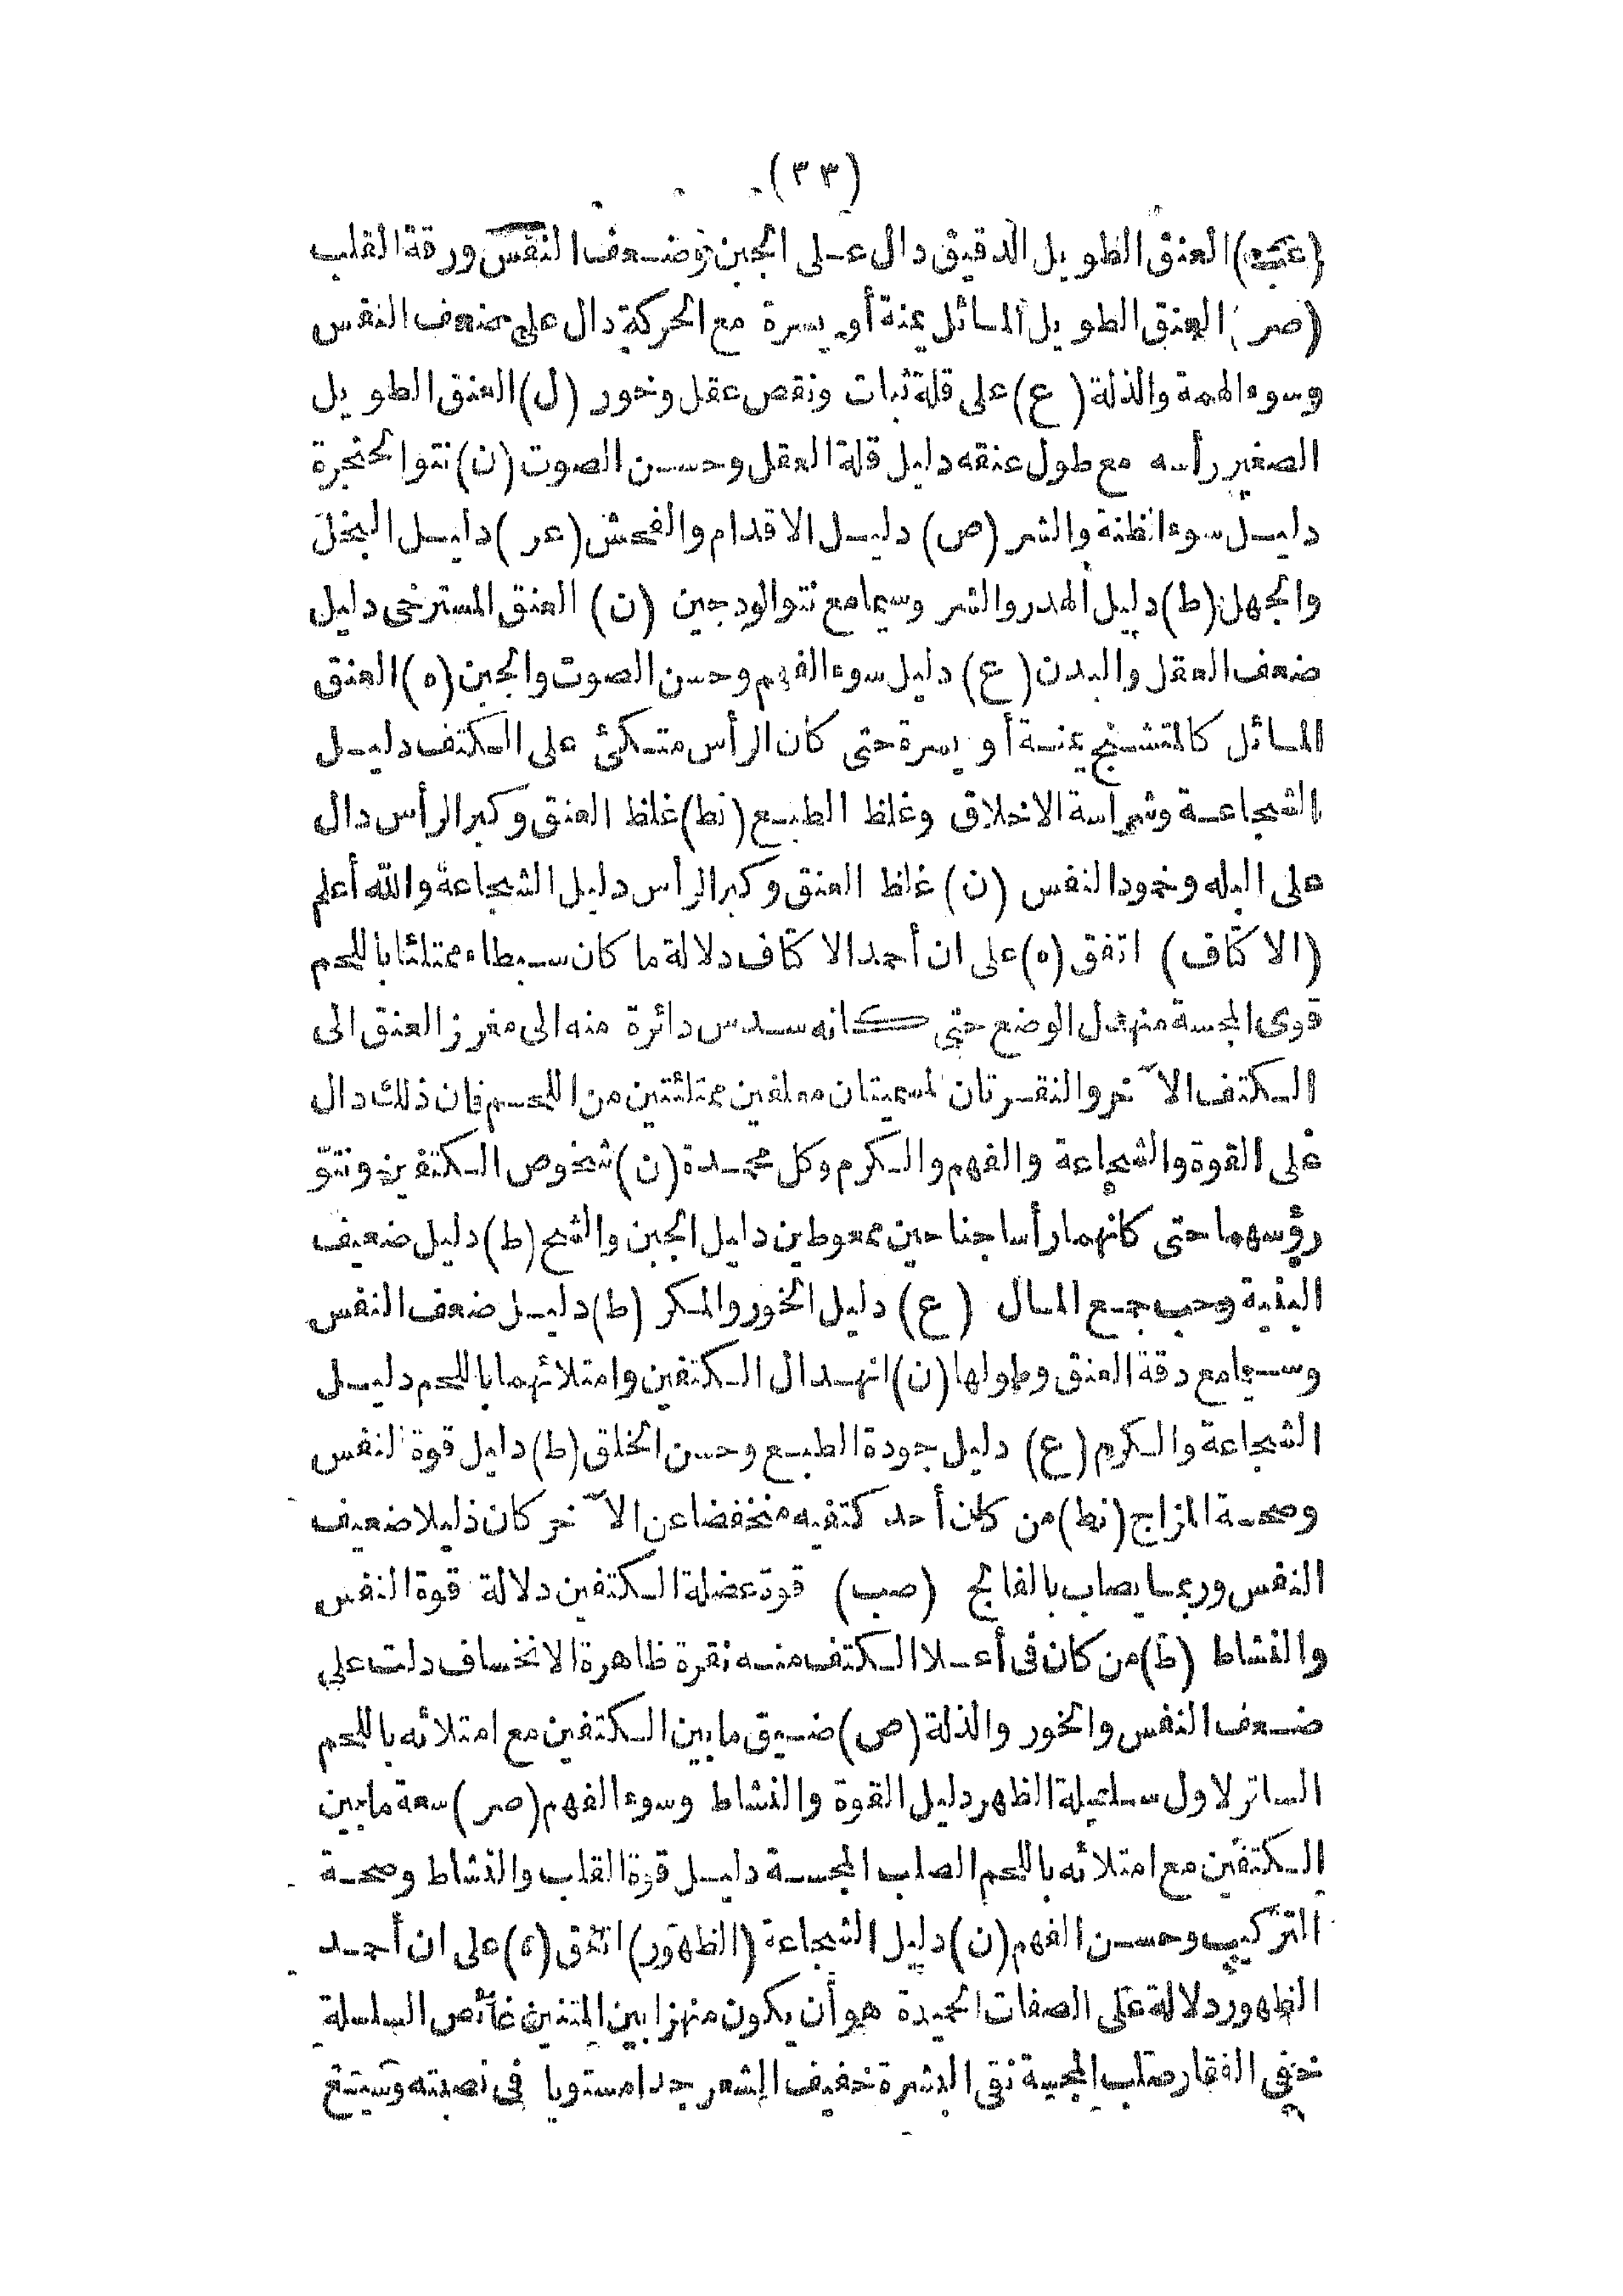 (٣٣)
العنق الطويل الدقيق دال على الجبن وضعف النفس ورقة القلب
(صر) العنق الطويل المائل يمنة أو يسرة مع الحركة دال على ضعف النفس
وسوء الهمة والذلة (ع) على قلة ثبات ونقص عقل وخور (ل) العنق الطويل
الصغير رأسه مع طول عنقه دليل قلة العقل وحسن الصوت (ن) نتوا لحنجرة
دليل سوء الظنة والشر (ص) دليل الاقدام والفحش (عر) دليل البخل
والجهل (ط) دليل الهدر والشر وسيما مع نتو الودجين (ن) العنق المسترخى دليل
ضعف العقل والبدن (ع) دليل سوء الفهم وحسن الصوت والجبن (ه) العنق
المائل كالمتشنج يمنة أو يسرة حتى كان الرأس متكئ على الكتف دليل
الشجاعة وشراسة الاخلاق وغلظ الطبع (نط) غلظ العنق وكبر الرأس دال
على البله وخمود النفس (ن) غلظ العنق وكبر الرأس دليل الشجاعة والله أعلم
(الاكتاف) اتفق (ه) على ان أحمد الاكتاف دلالة ما كان سبطاء ممتلئا باللحم
قوى المجسة منهدل الوضع حتى كانه سدس دائرة منه الى مغرز العنق الى
الكتف الآخر والنقرتان لمسميتان معلفين ممتلئتين من اللحم فان ذلك دال
على القوة والشجاعة والفهم والكرم وكل محمدة (ن) شخوص الكتفين ونتوّ
رؤسهما حتى كانهما رأسا جناحين ممعوطين دليل الجبن والشح (ط) دليل ضعيف
البنية وحب جمع المال (ع) دليل الخور والمكر (ط) دليل ضعف النفس
وسيما مع دقة العنق وطولها (ن) انهدال الكتفين وامتلائهما باللحم دليل
الشجاعة والكرم (ع) دليل جودة الطبع وحسن الخلق (ط) دليل قوة النفس
وصحة المزاج (نط) من كان أحد كتفيه منخفضا عن الآخر كان ذليلا ضعيف
النفس وربما يصاب بالفالج (صب) قوة عضلة الكتفين دلالة قوة النفس
والنشاط (ط) من كان فى أعلا الكتف منه نقرة ظاهرة الانخساف دلت على
ضعف النفس والخور والذلة (ص) ضيق ما بين الكتفين مع امتلائه باللحم
الساتر لاول سلسلة الظهر دليل القوة والنشاط وسوء الفهم (صر) سعة ما بين
الكتفين مع امتلائه باللحم الصلب المجسة دليل قوة القلب والنشاط وصحة
التركيب وحسن الفهم (ن) دليل الشجاعة (الظهور) اتفق (ه) على ان أحمد
الظهور دلالة على الصفات الحميدة هو أن يكون منهزا بين المتنين غائص السلسلة
خفى الفقار صلب المجسة نقى البشرة خفيف الشعر جدا مستويا فى نصبته وسيتبع